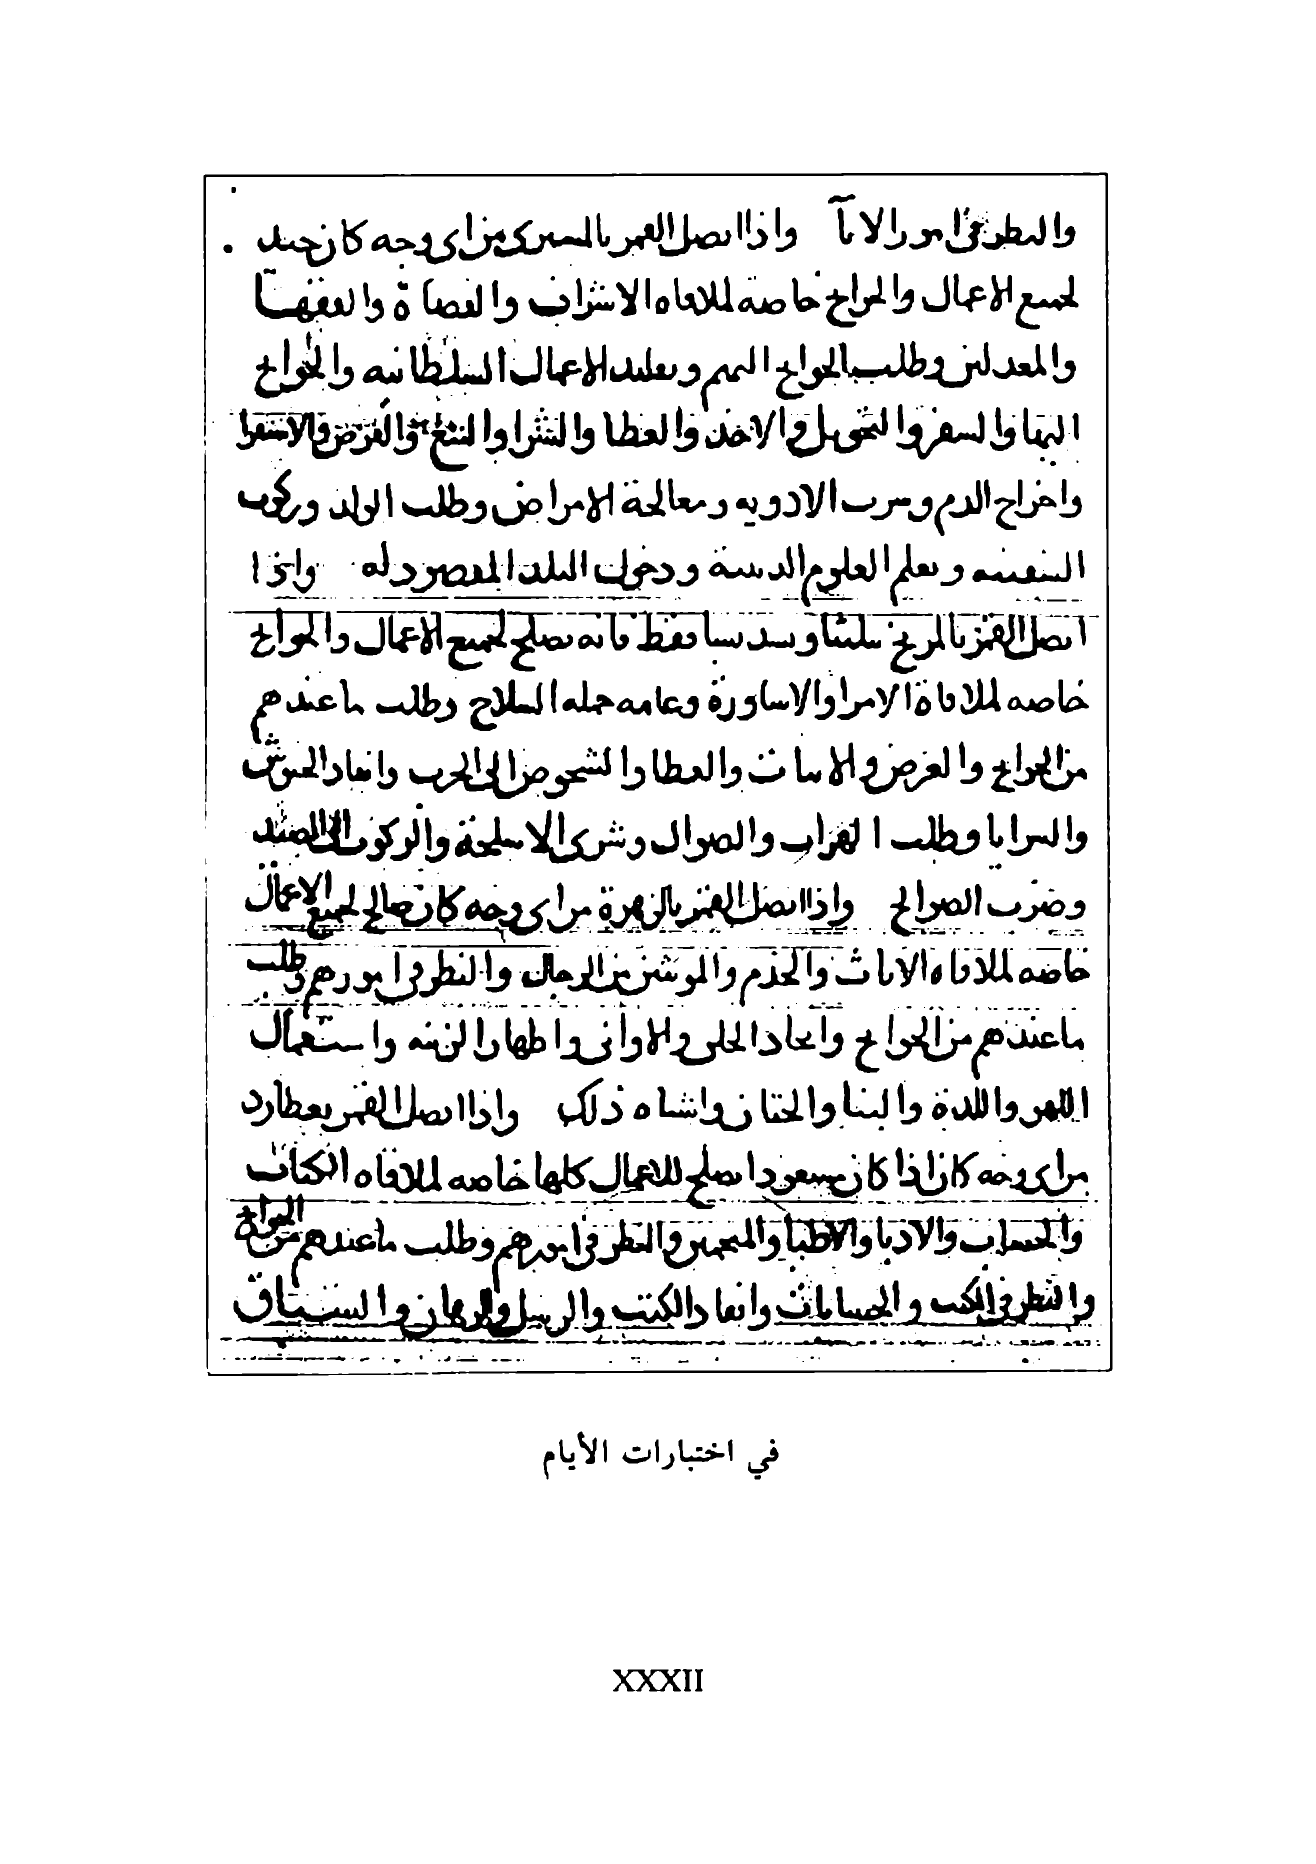 والنظر في امور الابآ واذا اتصل القمر بالمسىرى من اى وجه كان جيد
لجميع الاعمال والحوايج خاصه لملاقاه الاشراف والقضاة والفقها
والمعدلين وطلب الحوايج اليهم وتقليد الاعمال السلطانيه والحوايج
اليها والسفر والتحويل والاخذ والعطا والشرا والبيع والقرض والاستقرا
واخراج الدم وسرب الادويه ومعالجة الامراض وطلب الولد وركوب
السفينه وتعلم العلوم الدينية ودخول البلد المقصود له واذا
اتصل القمر بالمريخ تثليثا وتسديسا فقط فانه يصلح لجميع الاعمال والحوايج
خاصه لملاقاة الامرا والاساورة وعامه حمله السلاح وطلب ما عندهم
من الحوايج والعرض والاثبات والعطا والشخوص الى الحرب وانفاد الجيوش
والسرايا وطلب الهراب والصوال وشرى الاسلحة والركوب الى الصيد
وضرب الصوالج واذا اتصل القمر بالزهرة من اى وجه كان صالح لجميع الاعمال
خاصه لملاقاه الاناث والخدم والمونثين من الرجال والنظر في امورهم وطلب
ما عندهم من الحوايج واتخاد الحلى والاوانى واظهار الزينه واستعمال
اللهو واللذة والبنا والختان واشباه ذلك واذا اتصل القمر بعطارد
من اى وجه كان اذا كان مسعودا يصلح للاعمال كلها خاصه لملاقاه الكتاب
والحساب والادبا والاطبا والمنجمين والنظر في امورهم وطلب ما عندهم من الحوايج
والنظر في الكتب والحسابات وانفاد الكتب والرسل والرهان والسباق
في اختبارات الأيام
XXXII